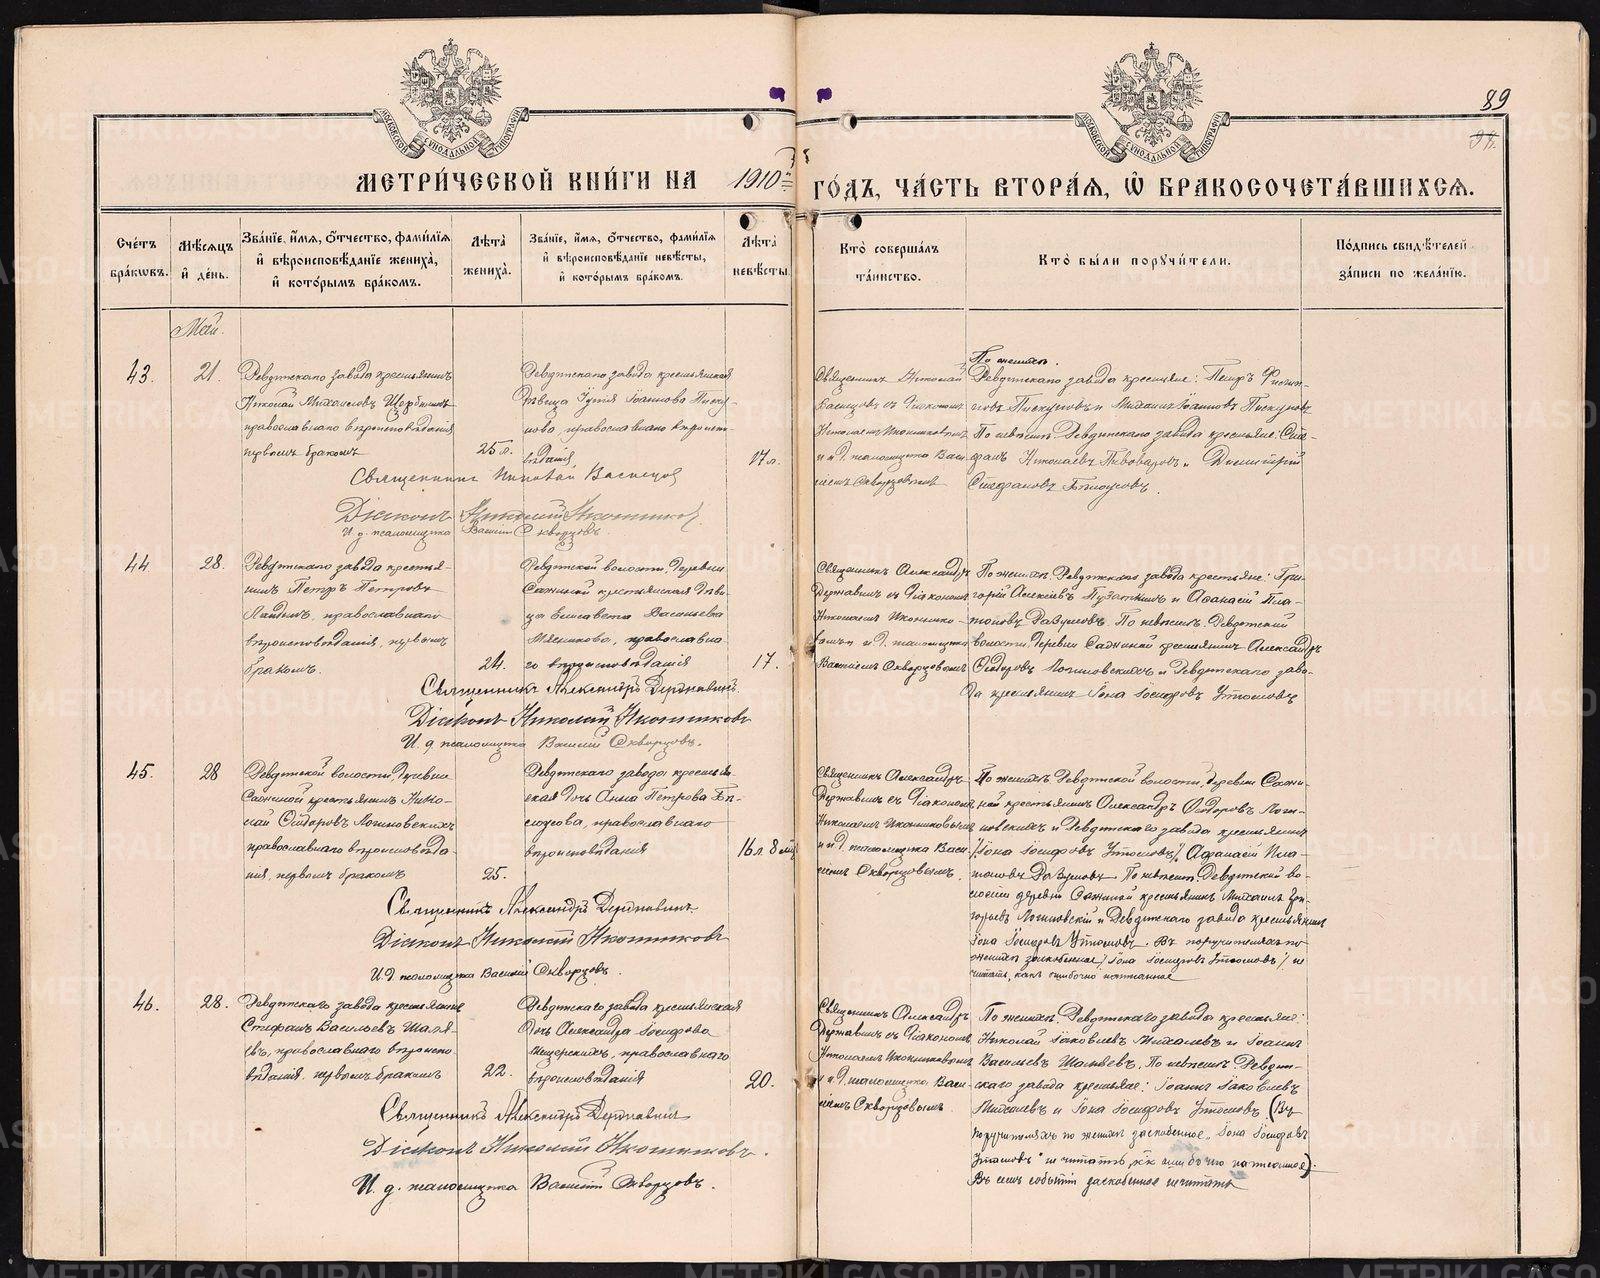 89
МОСКОВСКОЙ СѴНОДАЛЬНОЙ ТИПОГРАФІИ
МОСКОВСКОЙ СѴНОДАЛЬНОЙ ТИПОГРАФІИ
МЕТРИ́ЧЕСКОЙ КНИ́ГИ НА 1910 ГО́ДЪ, ЧА́СТЬ ВТОРА́Я, Ѡ҆ БРАКОСОЧЕТА́ВШИХСѦ.
Сче́тъ бра́кѡвъ.
Мѣ́сѧцъ и҆ де́нь.
Зва́нїе, и҆́мѧ, ѻ҆́тчество, фами́лїѧ и҆ вѣроисповѣ́данїе жениха̀, и҆ кото́рымъ бра́комъ.
Лѣ́та жениха̀.
Зва́нїе, и҆́мѧ, ѻ҆́тчество, фами́лїѧ и҆ вѣроисповѣ́данїе невѣ́сты, и҆ кото́рымъ бра́комъ.
Лѣ́та невѣ́сты.
Кто̀ соверша́лъ та́инство.
Кто̀ бы́ли порꙋчи́тели.
По́дпись свидѣ́телей за́писи по жела́нїю.
Май.
43.
21.
Ревдинскаго завода крестьянинъ
Николай Михаиловъ Щербинин
православнаго вѣроисповѣданія
первымъ бракомъ
25 л.
Ревдинскаго завода крестьянская
дѣвица Іулія Іоаннова Піску-
нова, православнаго вѣроиспо-
вѣданія
17 л.
Священникъ Николай
Васнецовъ съ діакономъ
Николаемъ Иконниковымъ
и и.д. псаломщика Васи-
ліемъ Скворцовымъ
По женихѣ.
Ревдинскаго завода крестьяне: Петръ
Пискуновъ и Михаилъ Іоанновъ Пискуновъ
По невѣстѣ: Ревдинскаго завода крестьяне: Сте-
фанъ Николаевъ Пивоваровъ и Димитрій
Стефановъ Бѣлоусовъ.
Священникъ Николай Васнецов
Діаконъ Николай Иконников
И. д. псаломщика Василій Скворцовъ
44
28.
Ревдинскаго завода крестья-
нинъ Петръ Петровъ
православнаго
вѣроисповѣданія, первымъ
бракомъ.
24.
Ревдинской волости, деревни
Сажиной крестьянская дѣви-
ца Елисавета Васильева
Мясникова, православна-
го вѣроисповѣданія
17.
Священникъ Александръ
Державинъ съ діакономъ
Николаемъ Иконнико-
вымъ и и.д. псаломщика
Василіемъ Скворцовымъ
По женихѣ: Ревдинскаго завода крестьяне: Гри-
горій Алексѣевъ и Аѳанасій Пла-
тоновъ По невѣстѣ: Ревдинской
волости, деревни Сажиной крестьянинъ Александръ
Ѳедоровъ Логиновскихъ и Ревдинскаго заво-
да крестьянинъ Іона Іосифовъ Утюмовъ
Священникъ Александръ Державинъ
Діаконъ Николай Иконниковъ
И. д. псаломщика Василій Скворцовъ.
45.
28
Ревдинской волости, деревни
Сажиной крестьянинъ Нико-
лай Ѳедоровъ Логиновскихъ
православнаго вѣроисповѣда-
нія, первымъ бракомъ
25.
Ревдинскаго завода крестьян-
ская дочь Анна Петрова Бѣ-
лоусова, православнаго
вѣроисповѣданія
16 л. 8 мц
Священникъ Александръ
Державинъ съ діакономъ
Николаемъ Иконниковымъ
и и.д. псаломщика Васи-
ліемъ Скворцовымъ.
По женихѣ: Ревдинской волости, деревни Сажи-
ной крестьянинъ Александръ Ѳедоровъ Логи-
новскихъ и Ревдинскаго завода крестьянинъ
/Іона Іосифовъ Утюмовъ/, Аѳанасій Пла-
тоновъ По невѣстѣ: Ревдинской во-
лости деревни Сажиной крестьянинъ Михаилъ Гри-
горьевъ Логиновскій и Ревдинскаго завода крестьянинъ
Іона Іосифовъ Утюмовъ. Въ поручителяхъ по
женихѣ заскобленное / Іона Іосифовъ Утюмовъ / не
читать, какъ ошибочно написанное
Священникъ Александръ Державинъ.
Діаконъ Николай Иконниковъ
И.д. псаломщика Василій Скворцовъ.
46.
28.
Ревдинскаго завода крестьянинъ
Стефанъ Васильевъ Шаля-
евъ, православнаго вѣроиспо-
вѣданія, первымъ бракомъ
22.
Ревдинскаго завода крестьянская
дочь Александра Іосифова
Мещерскихъ, православнаго
вѣроисповѣданія
20.
Священникъ Александръ
Державинъ съ діакономъ
Николаемъ Иконниковымъ
и и.д. псаломщика Васи-
ліемъ Скворцовымъ.
По женихѣ: Ревдинскаго завода крестьяне:
Николай Іаковлевъ и Іоаннъ
Васильевъ Шаляевъ. По невѣстѣ: Ревдин-
скаго завода крестьяне: Іоаннъ Іаковлевъ
и Іона Іосифовъ Утюмовъ. (Въ
поручителяхъ по женихѣ заскобленное „Іона Іосифовъ
Утюмовъ" не читать какъ ошибочно написанное).
Въ семъ событіи заскобленное не читать
Священникъ Александръ Державинъ
Діаконъ Николай Иконниковъ.
И. д. псаломщика Василій Скворцовъ.
METRIKI.GASO-URAL.RU